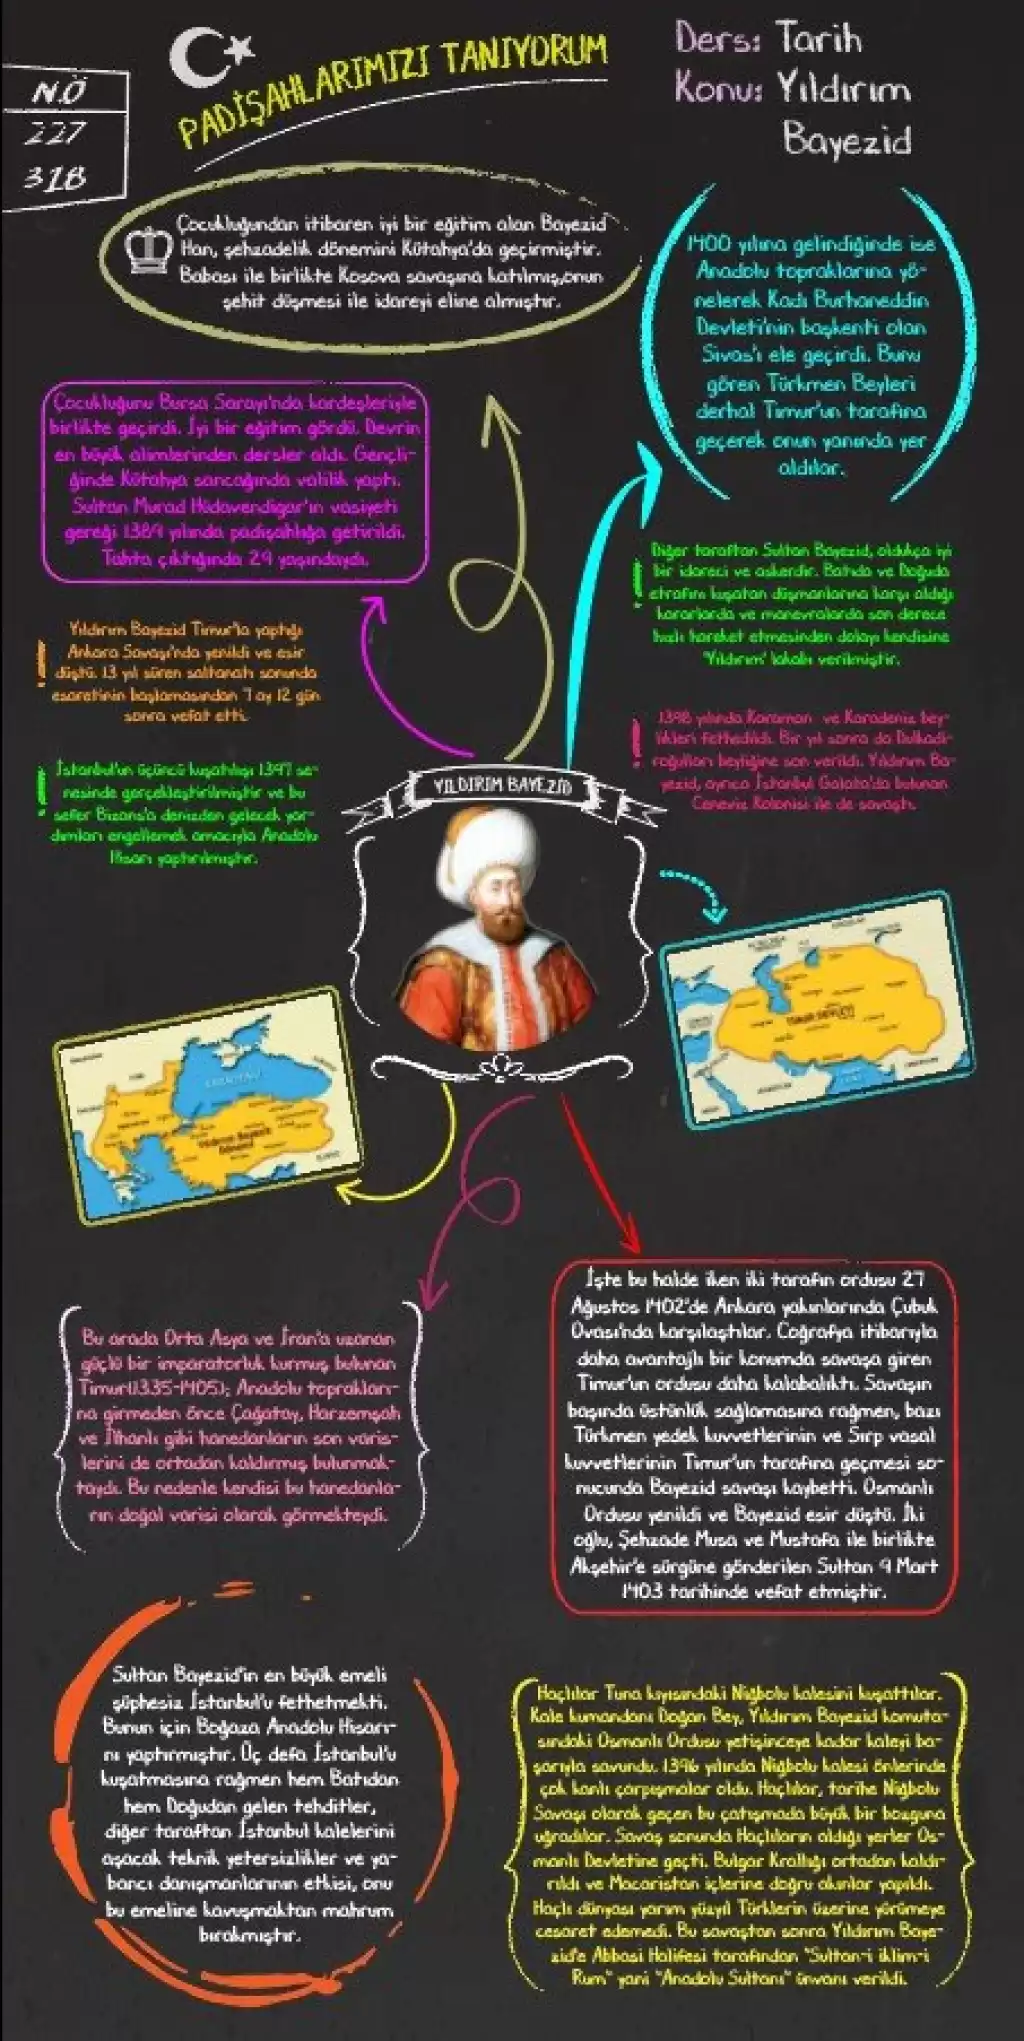 N.Ö
227
318
PADİŞAHLARIMIZI TANIYORUM
Ders: Tarih
Konu: Yıldırım
Bayezid
Çocukluğundan itibaren iyi bir eğitim alan Bayezid
Han, şehzadelik dönemini Kütahya'da geçirmiştir.
Babası ile birlikte Kosova savaşına katılmış,onun
şehit düşmesi ile idareyi eline almıştır.
1400 yılına gelindiğinde ise
Anadolu topraklarına yö-
nelerek Kadı Burhaneddin
Devleti'nin başkenti olan
Sivas'ı ele geçirdi. Bunu
gören Türkmen Beyleri
derhal Timur'un tarafına
geçerek onun yanında yer
aldılar.
Çocukluğunu Bursa Sarayı'nda kardeşleriyle
birlikte geçirdi. İyi bir eğitim gördü. Devrin
en büyük alimlerinden dersler aldı. Gençli-
ğinde Kütahya sancağında valilik yaptı.
Sultan Murad Hüdavendigar'ın vasiyeti
gereği 1389 yılında padişahlığa getirildi.
Tahta çıktığında 29 yaşındaydı.
Diğer taraftan Sultan Bayezid, oldukça iyi
bir idareci ve askerdir. Batıda ve Doğuda
etrafını kuşatan düşmanlarına karşı aldığı
kararlarda ve manevralarda son derece
hızlı hareket etmesinden dolayı kendisine
'Yıldırım' lakabı verilmiştir.
Yıldırım Bayezid Timur'la yaptığı
Ankara Savaşı'nda yenildi ve esir
düştü. 13 yıl süren saltanatı sonunda
esaretinin başlamasından 7 ay 12 gün
sonra vefat etti.
1398 yılında Karaman ve Karadeniz bey-
likleri fethedildi. Bir yıl sonra da Dulkadi-
roğulları beyliğine son verildi. Yıldırım Ba-
yezid, ayrıca İstanbul Galata'da bulunan
Ceneviz Kolonisi ile de savaştı.
İstanbul'un üçüncü kuşatılışı 1397 se-
nesinde gerçekleştirilmiştir ve bu
sefer Bizans'a denizden gelecek yar-
dımları engellemek amacıyla Anadolu
Hisarı yaptırılmıştır.
YILDIRIM BAYEZID
TİMUR DEVLETİ
KARADENİZ
Yıldırım Bayezid
Dönemi
Bu arada Orta Asya ve İran'a uzanan
güçlü bir imparatorluk kurmuş bulunan
Timur(1335-1405); Anadolu toprakları-
na girmeden önce Çağatay, Harzemşah
ve İlhanlı gibi hanedanların son varis-
lerini de ortadan kaldırmış bulunmak-
taydı. Bu nedenle kendisi bu hanedanla-
rın doğal varisi olarak görmekteydi.
İşte bu halde iken iki tarafın ordusu 27
Ağustos 1402'de Ankara yakınlarında Çubuk
Ovası'nda karşılaştılar. Coğrafya itibarıyla
daha avantajlı bir konumda savaşa giren
Timur'un ordusu daha kalabalıktı. Savaşın
başında üstünlük sağlamasına rağmen, bazı
Türkmen yedek kuvvetlerinin ve Sırp vasal
kuvvetlerinin Timur'un tarafına geçmesi so-
nucunda Bayezid savaşı kaybetti. Osmanlı
Ordusu yenildi ve Bayezid esir düştü. İki
oğlu, Şehzade Musa ve Mustafa ile birlikte
Akşehir'e sürgüne gönderilen Sultan 9 Mart
1403 tarihinde vefat etmiştir.
Sultan Bayezid'in en büyük emeli
şüphesiz İstanbul'u fethetmekti.
Bunun için Boğaza Anadolu Hisarı-
nı yaptırmıştır. Üç defa İstanbul'u
kuşatmasına rağmen hem Batıdan
hem Doğudan gelen tehditler,
diğer taraftan İstanbul kalelerini
aşacak teknik yetersizlikler ve ya-
bancı danışmanlarının etkisi, onu
bu emeline kavuşmaktan mahrum
bırakmıştır.
Haçlılar Tuna kıyısındaki Niğbolu kalesini kuşattılar.
Kale kumandanı Doğan Bey, Yıldırım Bayezid komuta-
sındaki Osmanlı Ordusu yetişinceye kadar kaleyi ba-
şarıyla savundu. 1396 yılında Niğbolu kalesi önlerinde
çok kanlı çarpışmalar oldu. Haçlılar, tarihe Niğbolu
Savaşı olarak geçen bu çatışmada büyük bir bozguna
uğradılar. Savaş sonunda Haçlıların aldığı yerler Os-
manlı Devletine geçti. Bulgar Krallığı ortadan kaldı-
rıldı ve Macaristan içlerine doğru akınlar yapıldı.
Haçlı dünyası yarım yüzyıl Türklerin üzerine yürümeye
cesaret edemedi. Bu savaştan sonra Yıldırım Baye-
zid'e Abbasi Halifesi tarafından "Sultan-i iklim-i
Rum" yani "Anadolu Sultanı" ünvanı verildi.